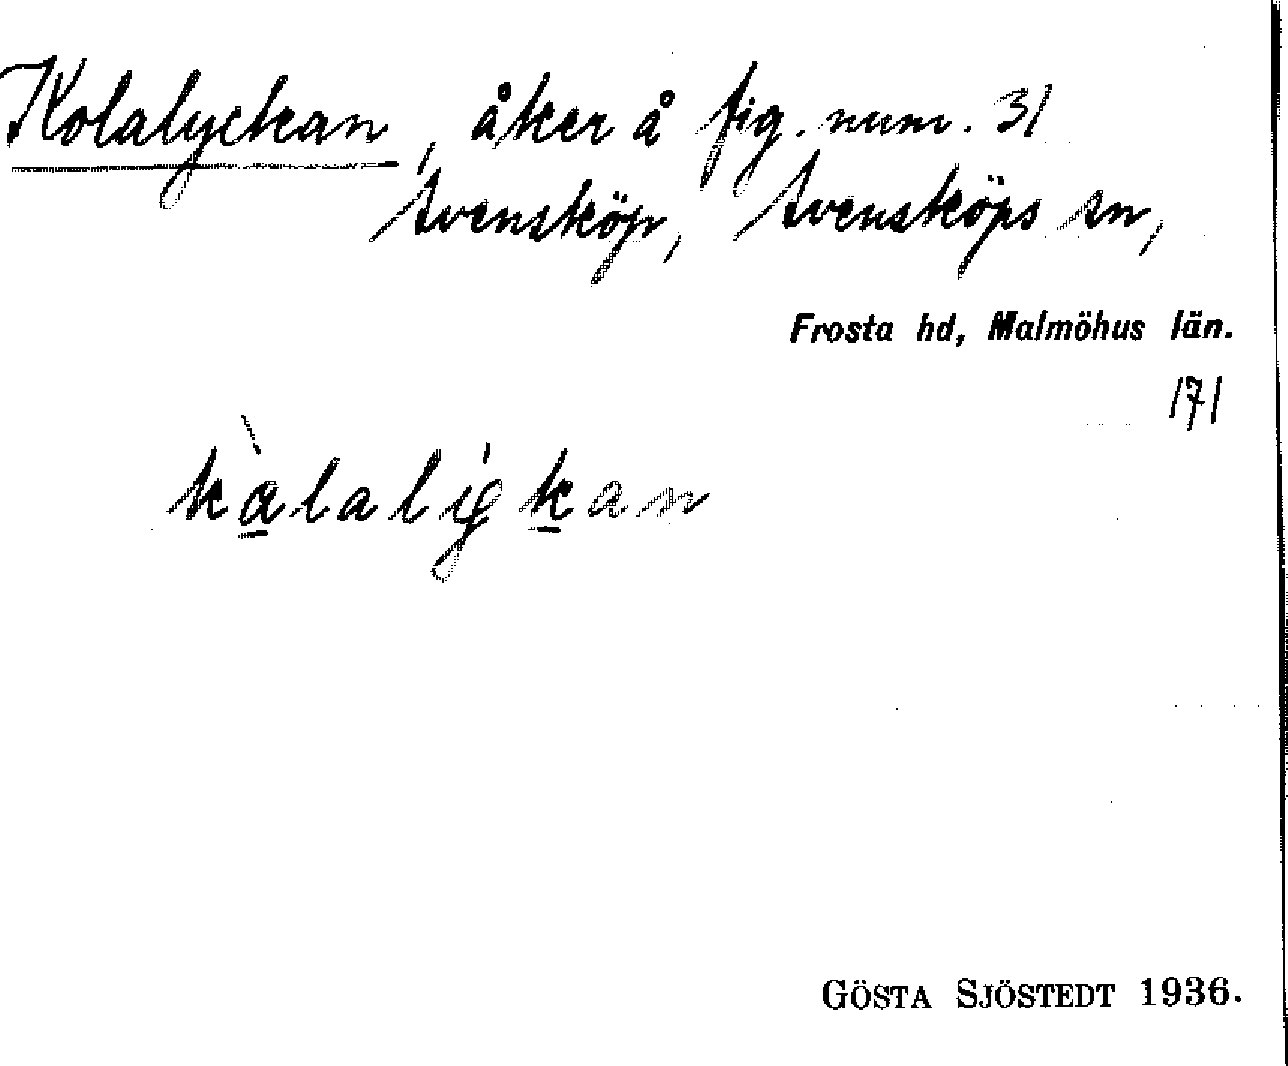 Kolalyckan, åker å fig. num. 31
Svensköp, Svensköps sn,
Frosta hd, Malmöhus län.
171
kàlaligkan
GÖSTA SJÖSTEDT 1936.